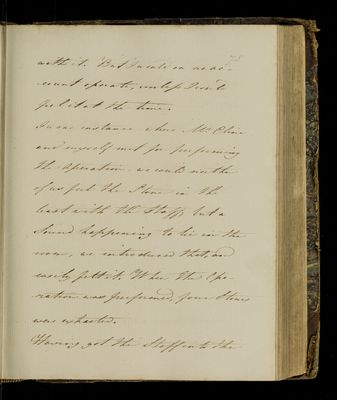 78
with it. But I would on no ac-
count operate, unless I could
feel it at the time.
In one instance when Mr. Cline
and myself met for performing
the operation we could neither
of us feel the Stone in the
least with the Staff, but a
Sound happening to be in the
room, we introduced that, and
easily felt it. When the Ope-
ration was performed, four Stones
were extracted.
Having got the Staff into the